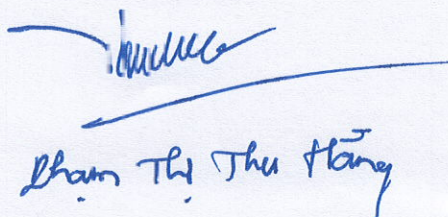 Phạm Thị Thu Hằng